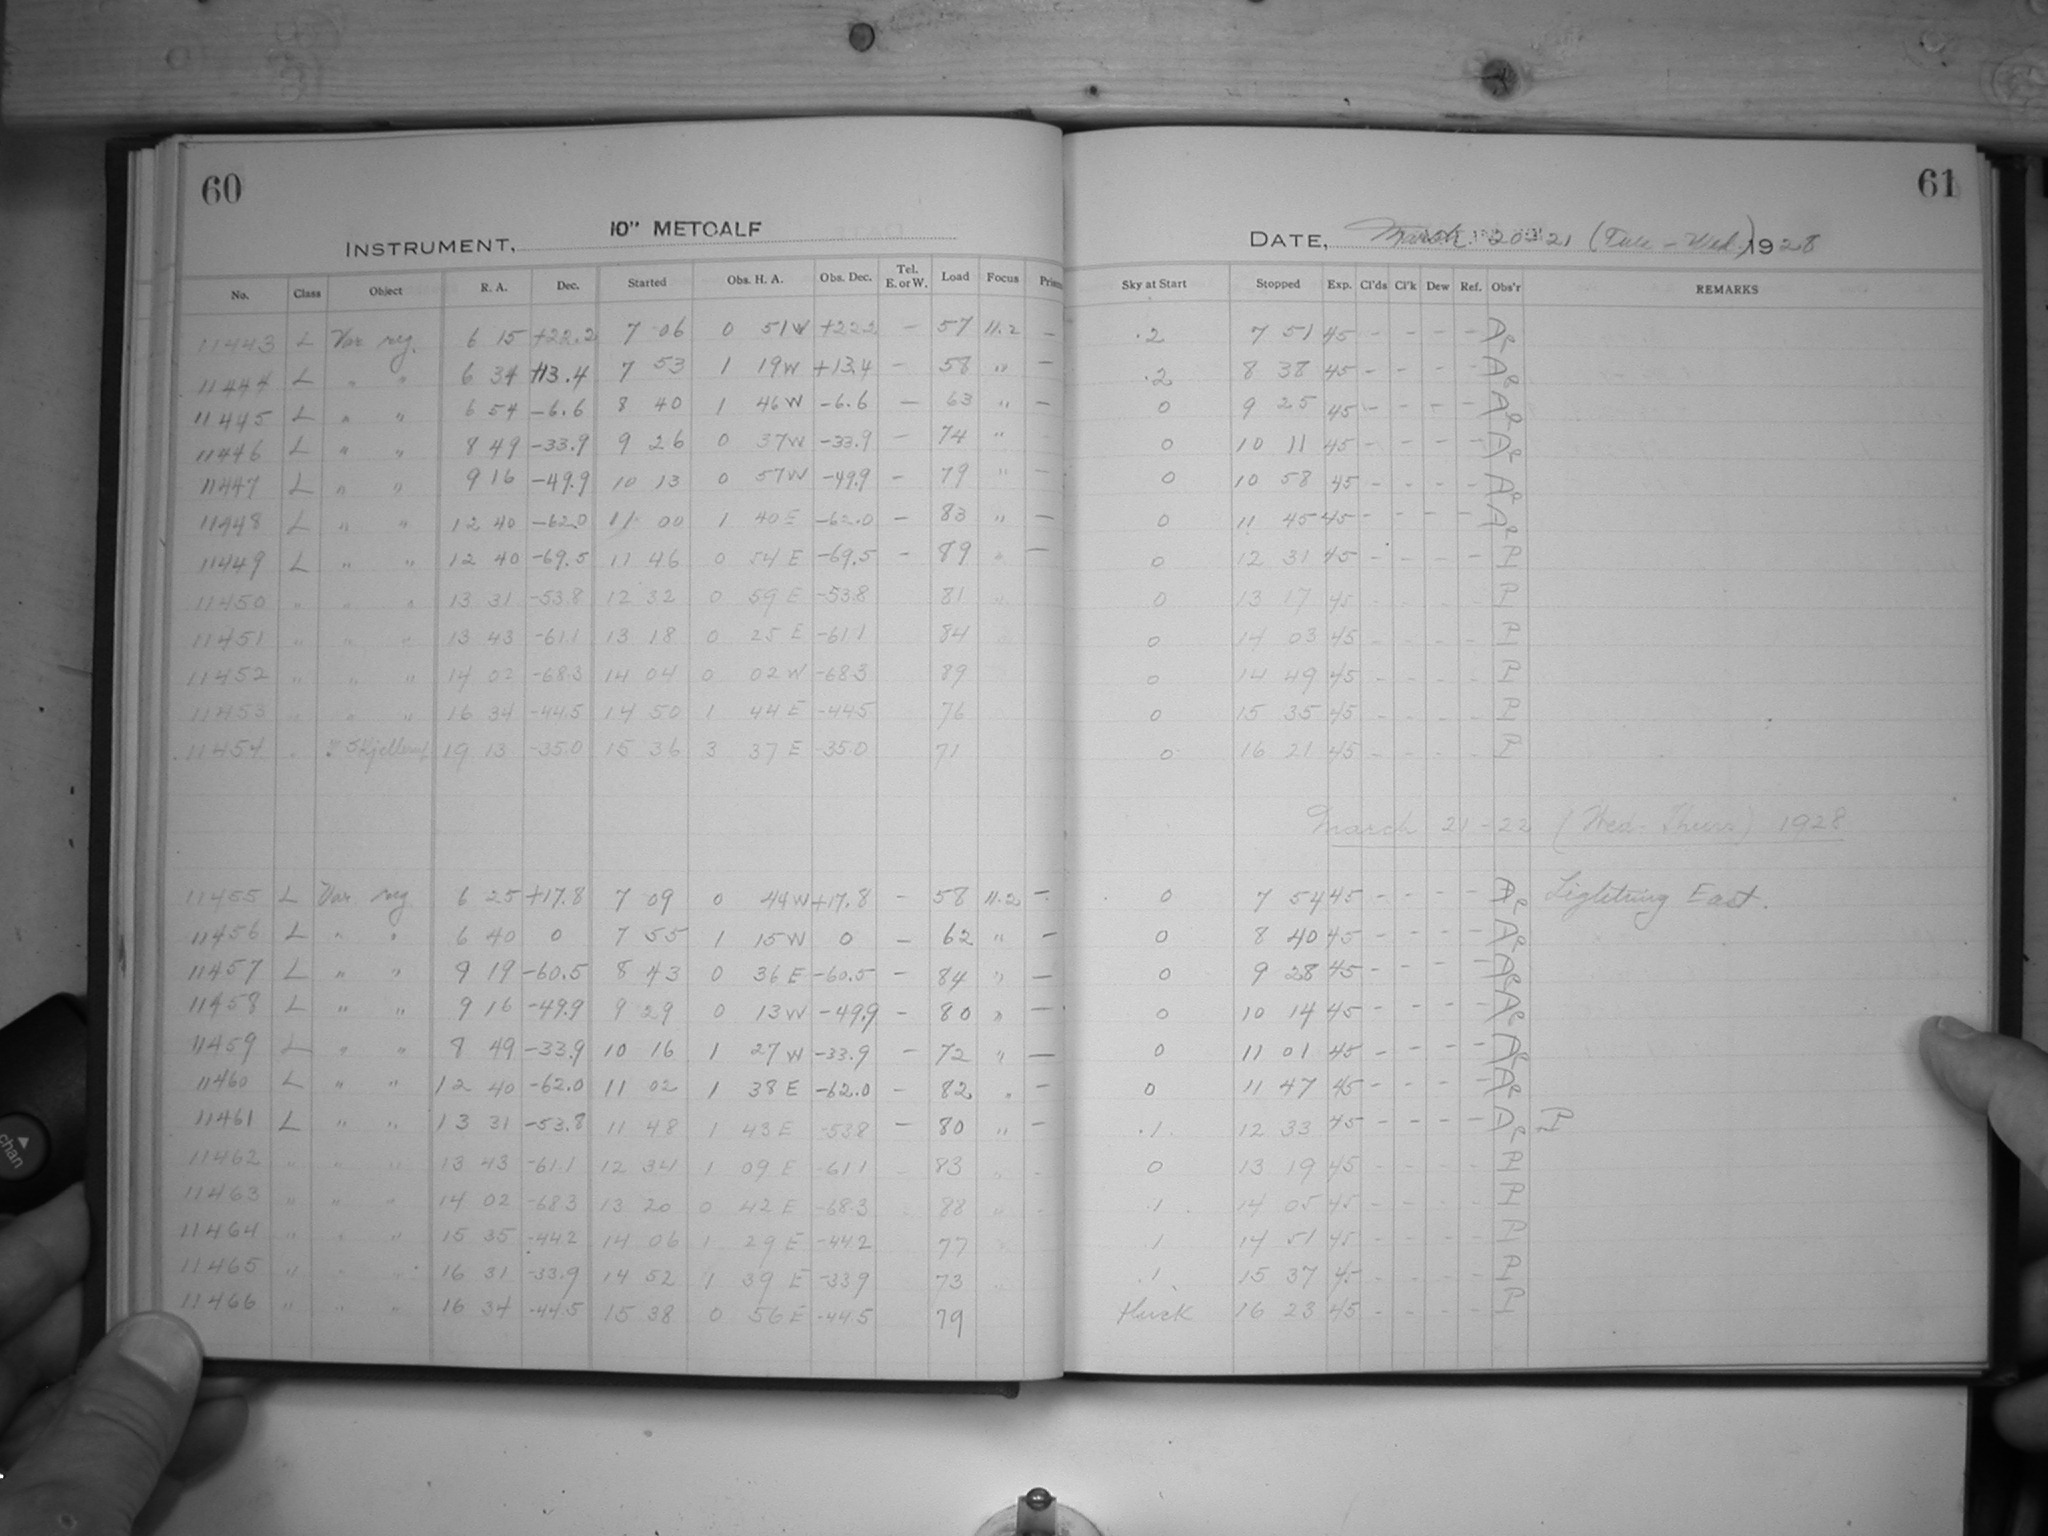 60
61
INSTRUMENT, 10" METCALF
DATE, March 20-21 (Tue-Wed.) 1928
No. Class Object R. A. Dec. Started Obs. H. A. Obs. Dec. Tel. E. or W. Load Focus Prism Sky at Start Stopped Exp. Cl'ds Cl'k Dew Ref. Obs'r REMARKS
11443 L Var reg. 6 15 +22.2 7 06 0 51W +22.2 - 57 11.2 - .2 7 51 45 - - - - Ae
11444 L " " 6 34 +13.4 7 53 1 19W +13.4 - 58 " - .2 8 38 45 - - - - Ae
11445 L " " 6 54 -6.6 8 40 1 46W -6.6 - 63 " - 0 9 25 45 - - - - Ae
11446 L " " 8 49 -33.9 9 26 0 37W -33.9 - 74 " 0 10 11 45 - - - - Ae
11447 L " " 9 16 -49.9 10 13 0 57W -49.9 - 79 " - 0 10 58 45 - - - - Ae
11448 L " " 12 40 -62.0 11 00 1 40E -62.0 - 83 " - 0 11 45 45 - - - - Ae
11449 L " " 12 40 -69.5 11 46 0 54 E -69.5 - 89 " - 0 12 31 45 - - - - P
11450 " " " 13 31 -53.8 12 32 0 59 E -53.8 81 " 0 13 17 45 - - - - P
11451 " " " 13 43 -61.1 13 18 0 25 E -61.1 84 0 14 03 45 - - - - P
11452 " " " 14 02 -68.3 14 04 0 02 W -68.3 89 0 14 49 45 - - - - P
11453 " " " 16 34 -44.5 14 50 1 44 E -44.5 76 0 15 35 45 - - - - P
11454 " " Skjellerup 19 13 -35.0 15 36 3 37 E -35.0 71 0 16 21 45 - - - - P
March 21-22 (Wed-Thurs) 1928
11455 L Var reg 6 25 +17.8 7 09 0 44W +17.8 - 58 11.2 - 0 7 54 45 - - - - Ae Lightning East.
11456 L " " 6 40 0 7 55 1 15W 0 - 62 " - 0 8 40 45 - - - - Ae
11457 L " " 9 19 -60.5 8 43 0 36 E -60.5 - 84 " - 0 9 28 45 - - - - Ae
11458 L " " 9 16 -49.9 9 29 0 13W -49.9 - 80 " - 0 10 14 45 - - - - Ae
11459 L " " 8 49 -33.9 10 16 1 27W -33.9 - 72 " - 0 11 01 45 - - - - Ae
11460 L " " 12 40 -62.0 11 02 1 38 E -62.0 - 82 " - 0 11 47 45 - - - - Ae
11461 L " " 13 31 -53.8 11 48 1 43 E -53.8 - 80 " - .1 12 33 45 - - - - Ae P
11462 " " " 13 43 -61.1 12 34 1 09 E -61.1 83 " - 0 13 19 45 - - - - P
11463 " " " 14 02 -68.3 13 20 0 42 E -68.3 88 " - .1 14 05 45 - - - - P
11464 " " " 15 35 -44.2 14 06 1 29 E -44.2 77 .1 14 51 45 - - - - P
11465 " " " 16 31 -33.9 14 52 1 39 E -33.9 73 .1 15 37 45 - - - - P
11466 " " " 16 34 -44.5 15 38 0 56 E -44.5 79 thick 16 23 45 - - - - P
chan